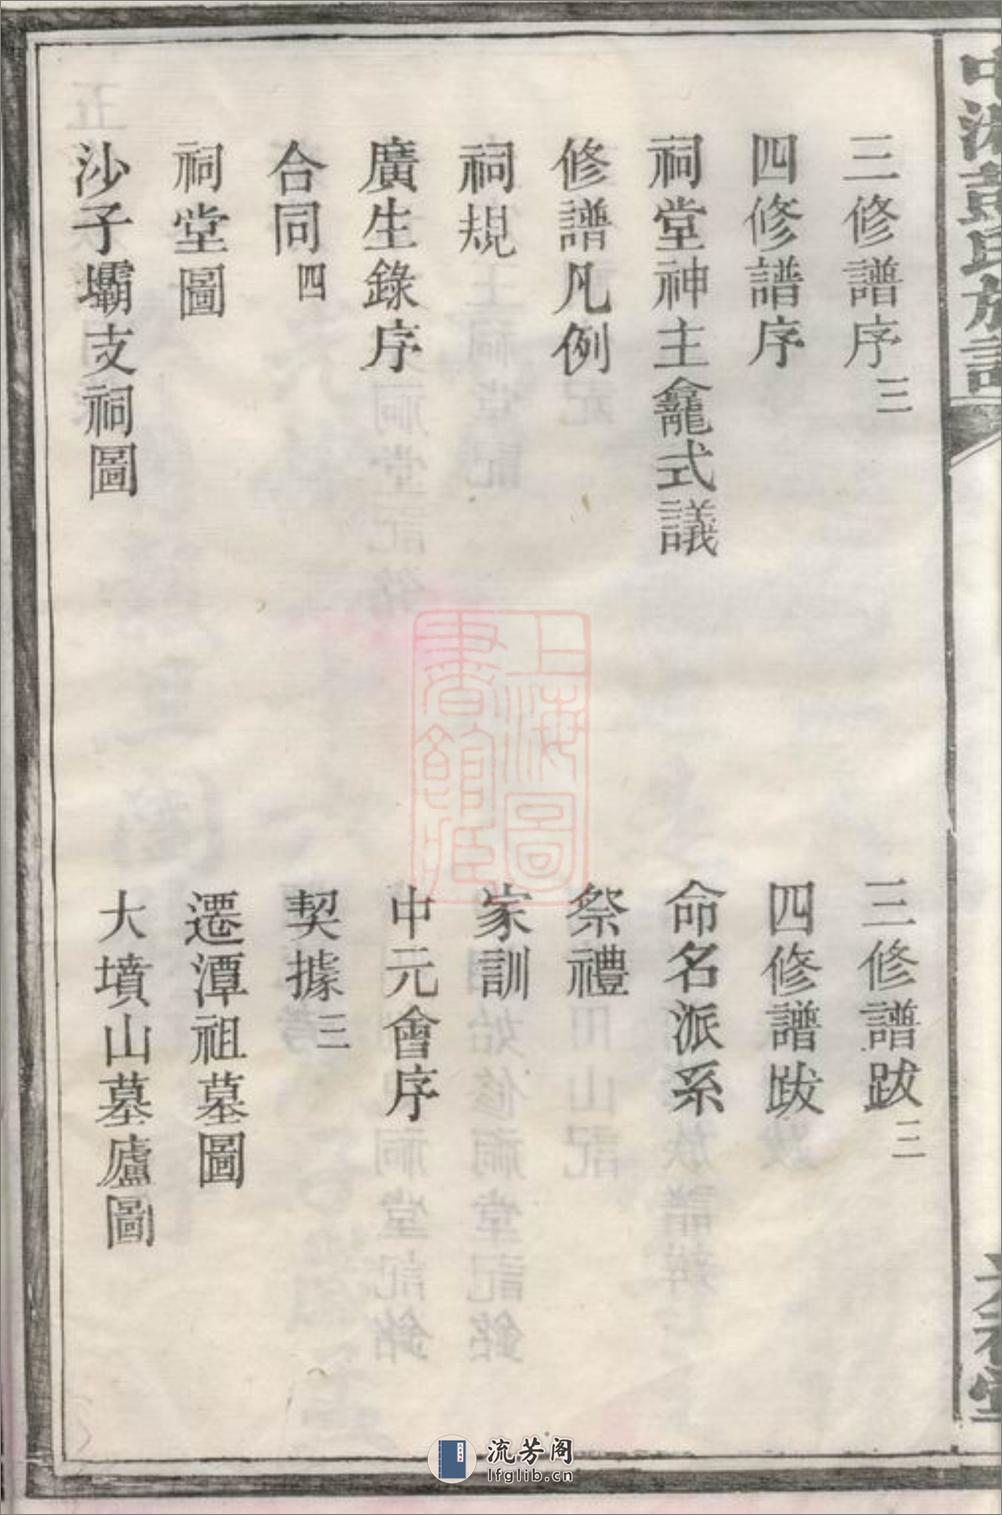 三修譜序 三
三修譜跋 三
四修譜序
四修譜跋
祠堂神主龕式議
命名派系
修譜凡例
祭禮
祠規
家訓
廣生錄序
中元會序
合同 四
契據 三
祠堂圖
遷潭祖墓圖
沙子壩支祠圖
大墳山墓廬圖
上海圖書館藏
流芳阁
lfglib.cn